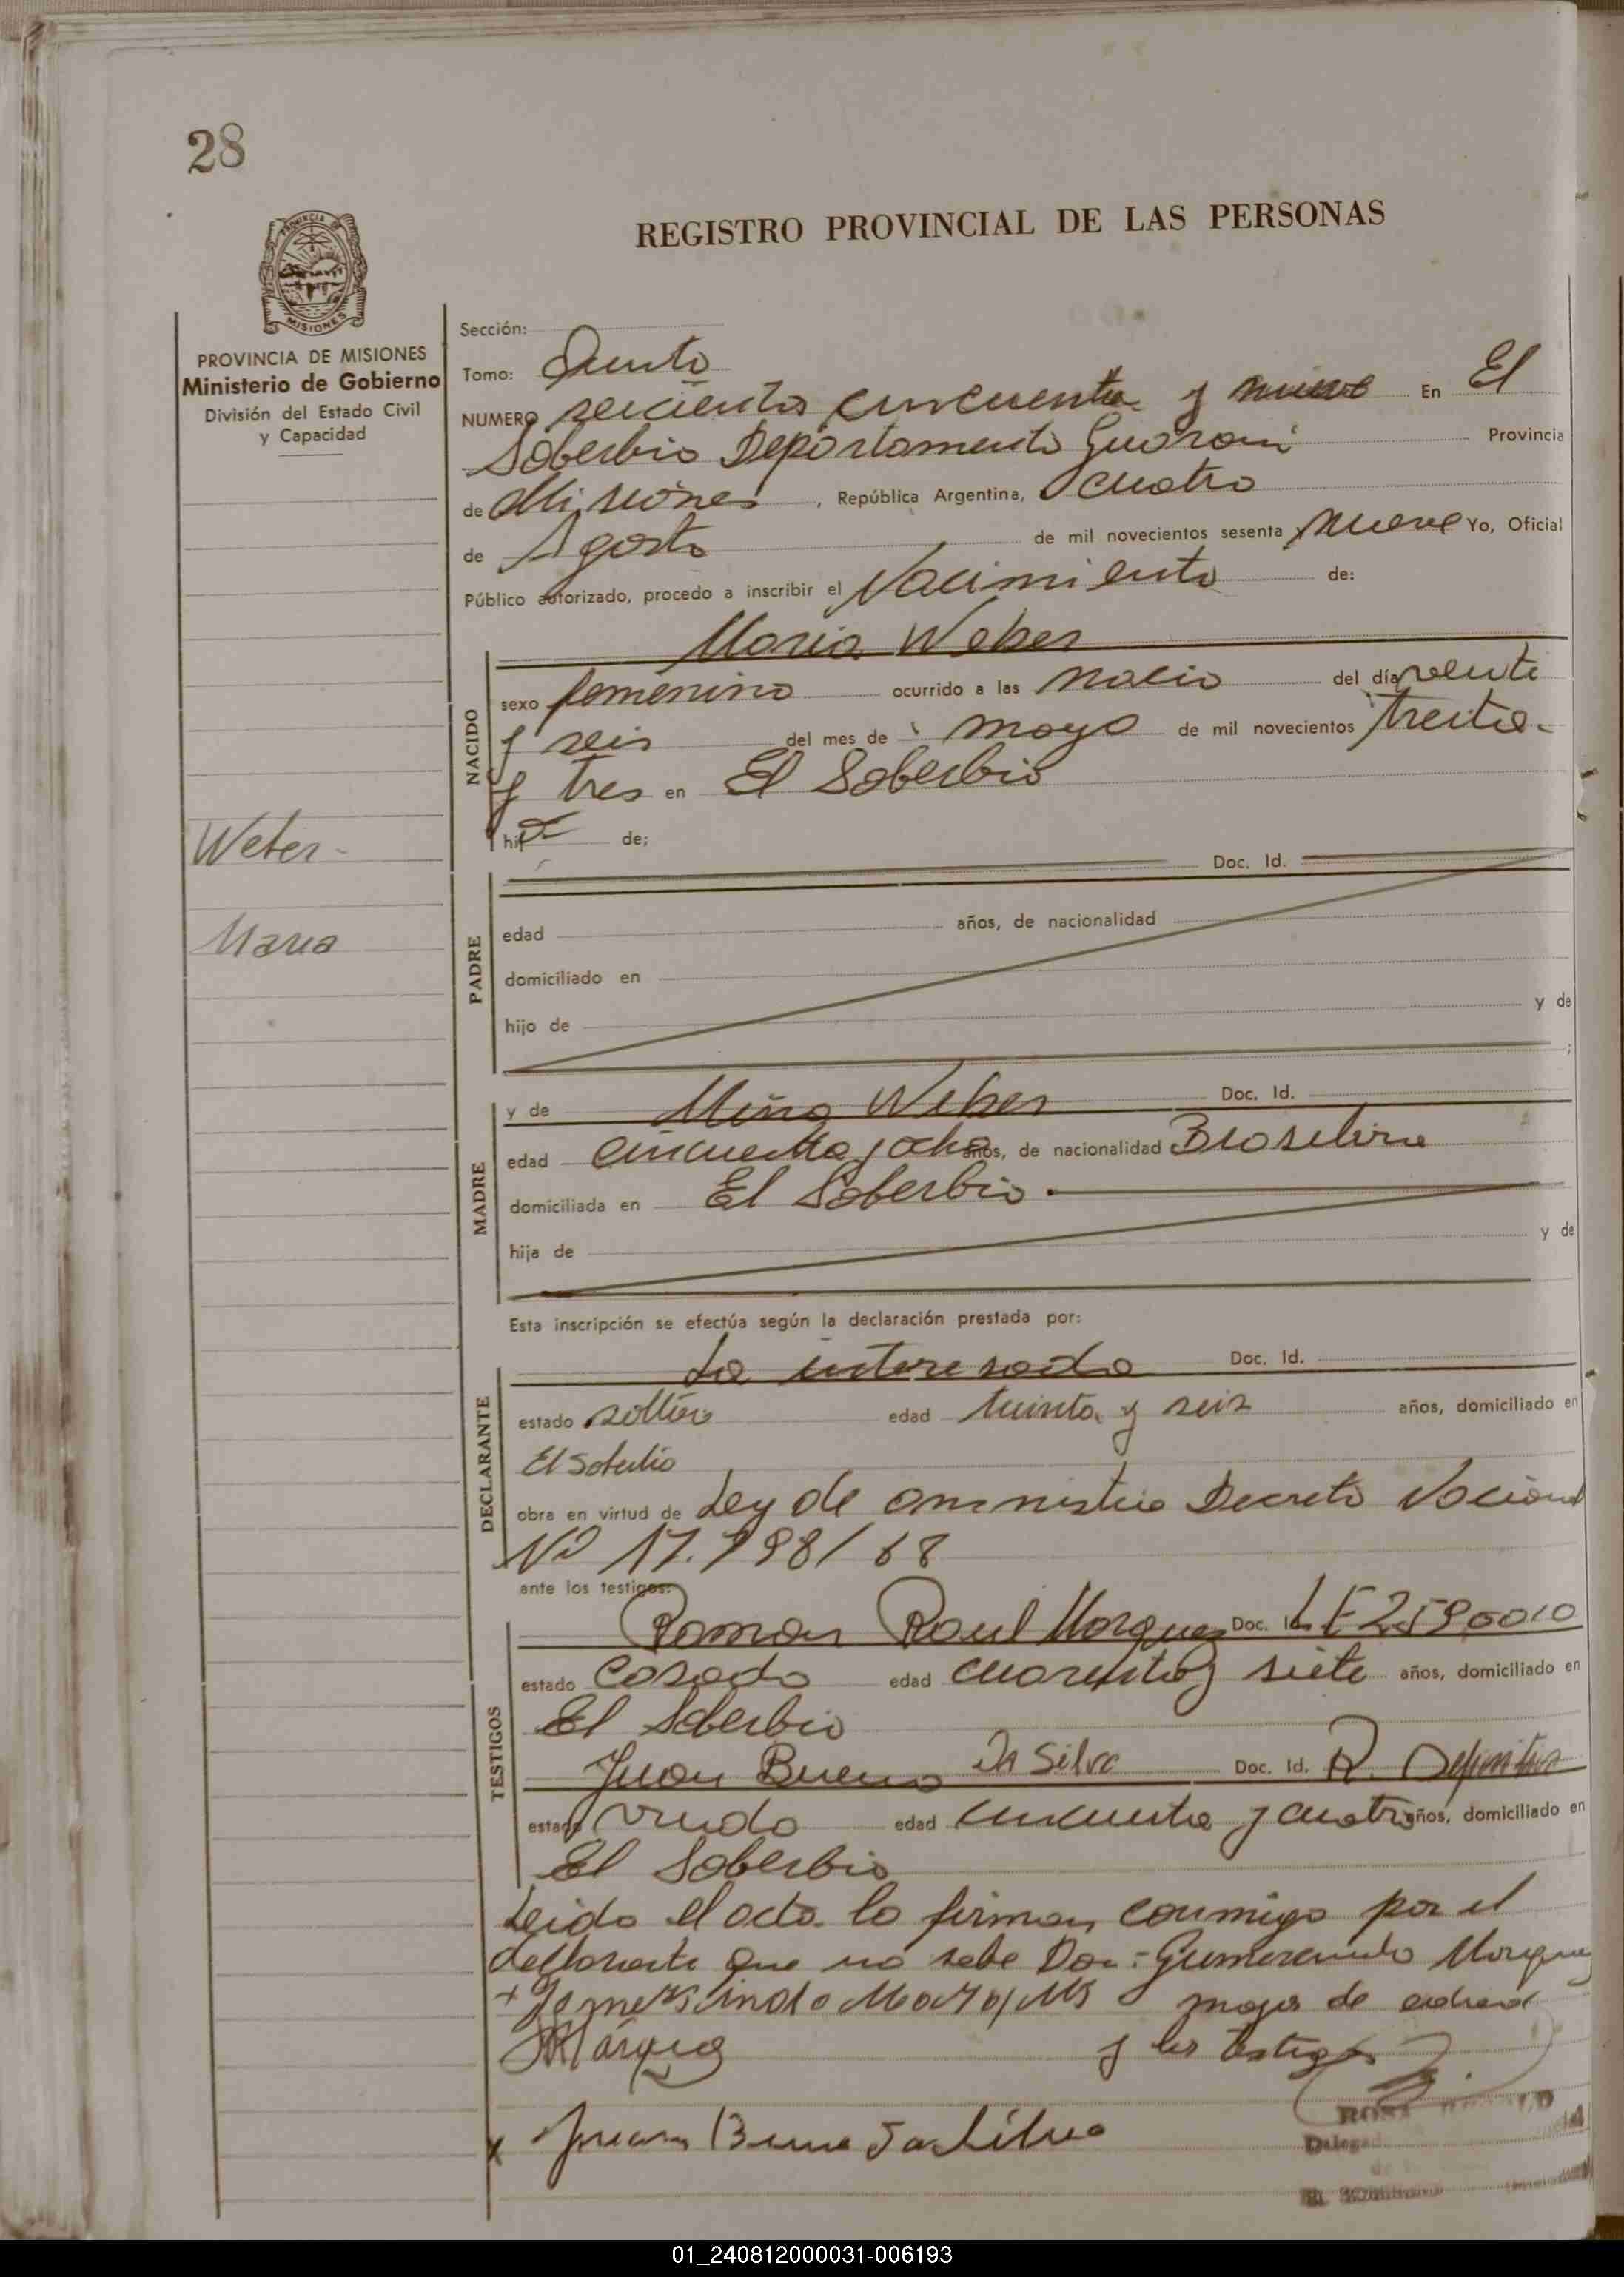 28
REGISTRO PROVINCIAL DE LAS PERSONAS
PROVINCIA DE MISIONES
Ministerio de Gobierno
División del Estado Civil
y Capacidad
Weber
Maria
Sección:
Tomo: Quinto
NUMERO seiciento cincuenta y nueve En El
Soberbio Departamento Guarani Provincia
de Misiones, República Argentina, cuatro
de Agosto de mil novecientos sesenta y nueve Yo, Oficial
Público autorizado, procedo a inscribir el Nacimiento de:
NACIDO
Maria Weber
sexo femenino ocurrido a las nacio del día veinte
y seis del mes de mayo de mil novecientos treita
y tres en El Soberbio
hija de;
PADRE
Doc. Id.
edad años, de nacionalidad
domiciliado en
hijo de y de
;
MADRE
y de Weber Doc. Id.
edad cincuenta y ocho años, de nacionalidad Brasilera
domiciliada en El Soberbio
hija de y de
Esta inscripción se efectúa según la declaración prestada por:
DECLARANTE
La interesada Doc. Id.
estado soltera edad treinta y seis años, domiciliado en
El Soberbio
obra en virtud de Ley de amnistia Decreto Nacional
Nº 17.798/68
ante los testigos:
TESTIGOS
Ramon Raul Marquez Doc. Id. LE
estado casado edad cuarenta y siete años, domiciliado en
El Soberbio
Juan Bueno Da Silva Doc. Id. R.
estado viudo edad cincuenta y cuatro años, domiciliado en
El Soberbio
Leido el acta lo firman conmigo por el
declarante que no sabe Don: Gumersindo
mayor de edad
y los testigos
El SOBERBIO
01_240812000031-006193